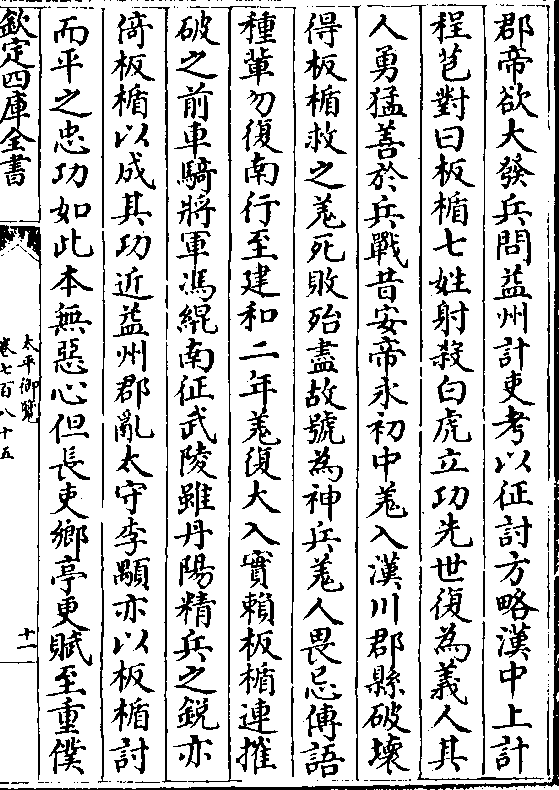 郡帝欲大發兵問益州計吏考以征討方略漢中上計
程芭對曰板楯七姓射殺白虎立功先世復為義人其
人勇猛善於兵戰昔安帝永初中羌入漢川郡縣破壞
得板楯救之羌死敗殆盡故號為神兵羌人畏忌傳語
種輩勿復南行至建和二年羌復大入實賴板楯連摧
破之前車騎將軍馮緄南征武陵雖丹陽精兵之銳亦
倚板楯以成其功近益州郡亂太守李顒亦以板楯討
而平之忠功如此本無惡心但長吏鄉亭更賦至重僕
欽定四庫全書
太平御覽
卷七百八十五
十一